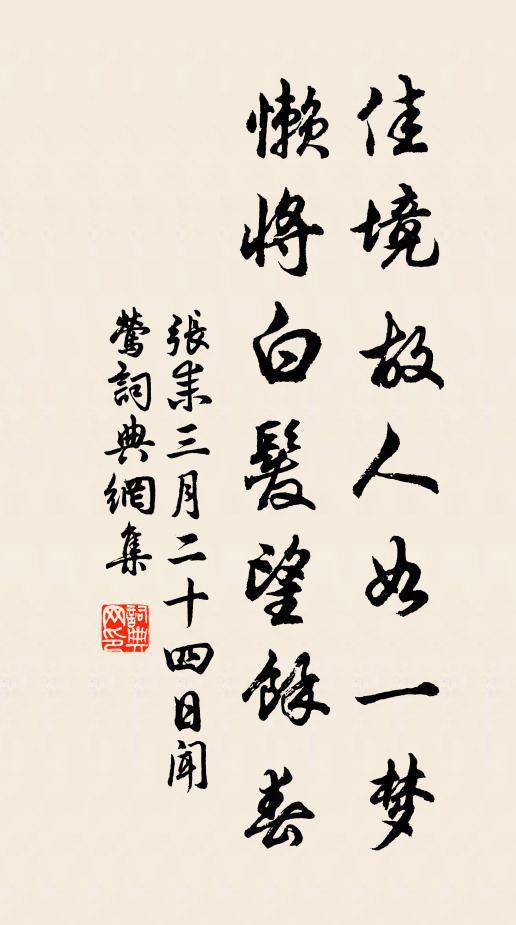 佳境故人如一梦
懒将白髮望餘春
張耒三月二十四日聞
鶯詞典網集
詞典
网印